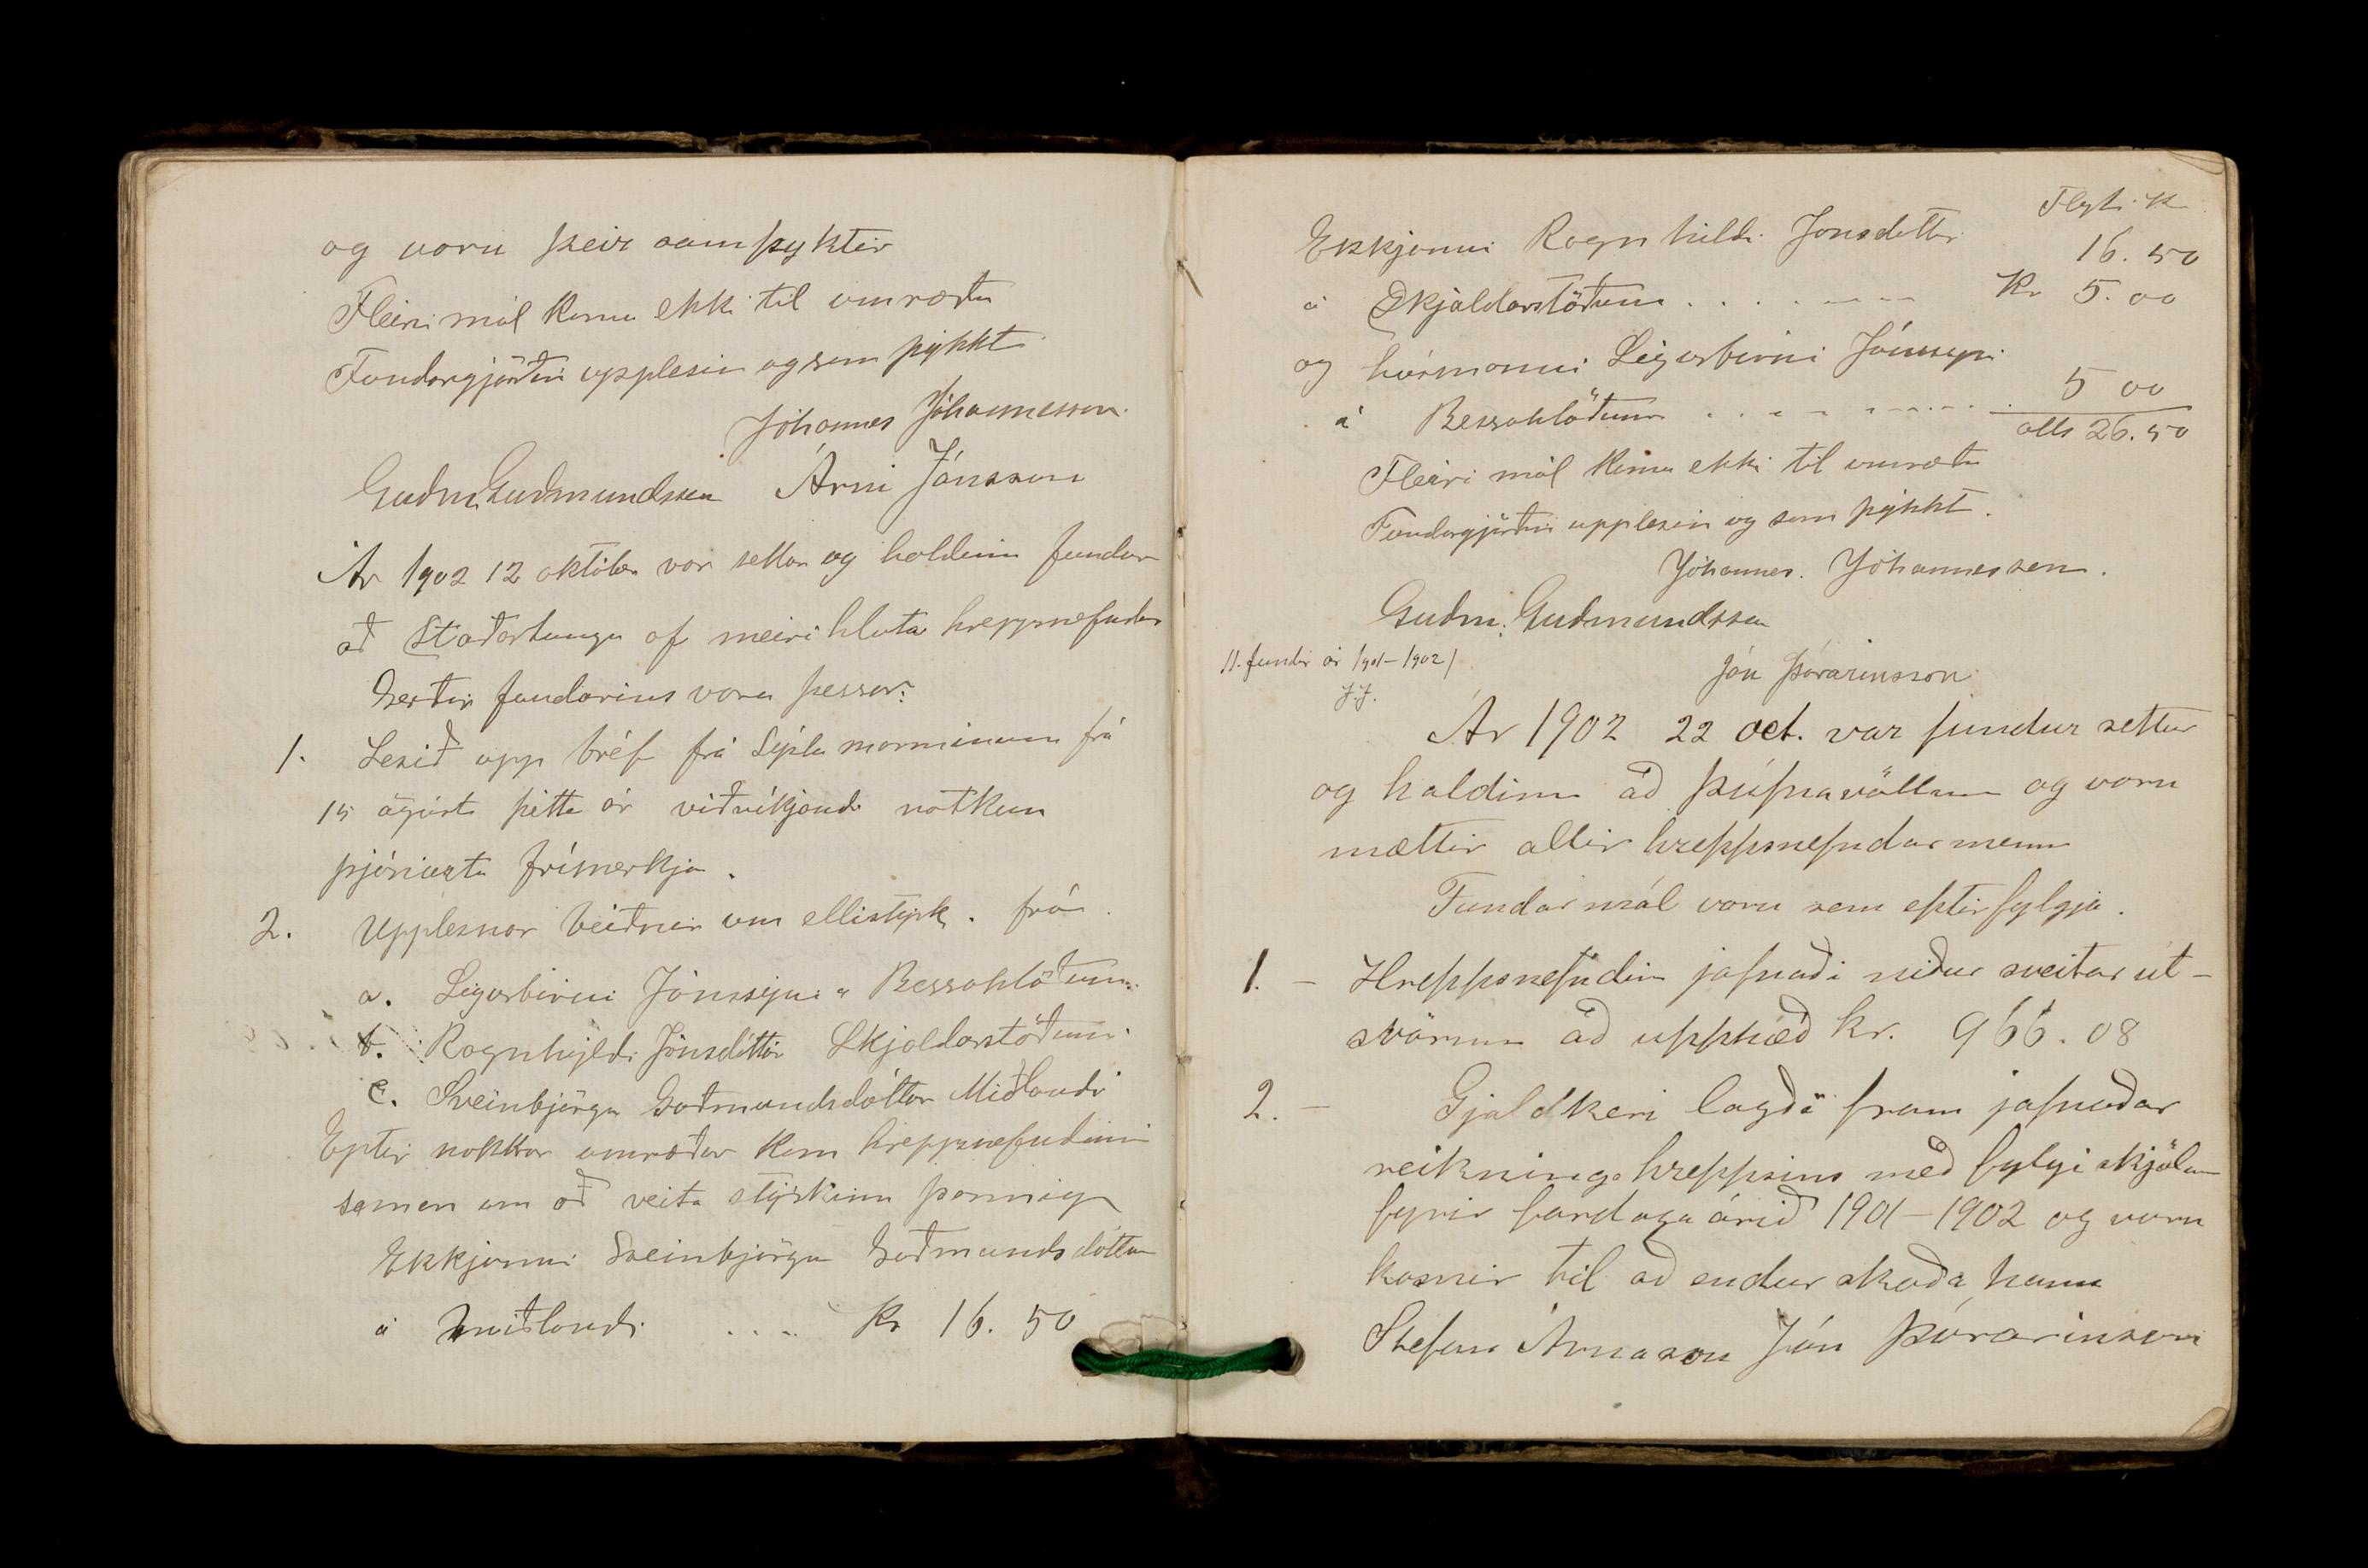 og voru þeir samþyktir
Fleiri mál komu ekki til umræðu
Fundargjörðin upplesin og samþykkt
Jóhannes Jóhannesson.
Guðm. Guðmundsson Árni Jónsson
Ár 1902 12 október var settur og haldinn fundur
að Staðartungu af meirihluta hreppsnefndar
Gerðir fundarins voru þessar:
1. Lesið upp bréf frá Sýslumanninum frá
15 ágúst þetta ár viðvíkjandi notkun
þjónustu frímerkja.
2. Upplesnar beiðnir um ellistyrk. frá
a. Sigurbirni Jónssyni á Bessahlöðum.
b. Ragnhyldi Jónsdóttir Skjaldarstöðum
c. Sveinbjörgu Guðmundsdóttur Miðlandi
Eptir nokkrar umræður kom hreppsnefndinni
saman um að veita styrkinn þannig
Ekkjunni Sveinbjörgu Guðmundsdóttur
á Miðlandi .... Kr 16. 50
Flyt. K
Ekkjunni Ragnhildi Jónsdóttir 16. 50
á Skjaldarstöðum . . . . - - - Kr 5. 00
og húsmanni Sigurbirni Jónssyni
á Bessahlöðum . . - - - - - - - 5 00
alls 26. 50
Fleiri mál komu ekki til umræðu
Fundargjörðin upplesin og samþykkt.
Jóhannes. Jóhannesson.
Guðm: Guðmundsson
11. fundir ár 1901-1902)
J.J.
Jón Þórarinsson
Ár 1902 22 oct. var fundur settur
og haldinn að Þúfnavöllum og voru
mættir allir hreppsnefndarmenn
Fundarmál voru sem eptirfylgja.
1. - Hreppsnefndin jafnaði niður sveitarút-
svörum að upphæð kr. 966. 08
2. - Gjaldkeri lagði fram jafnaðar
reikning hreppsins með fylgiskjölum
fyrir fardagaárið 1901-1902 og voru
kosnir til að endurskoða hann
Stefan Árnason Jón Þórarinsson